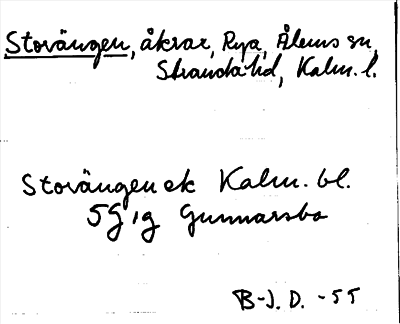 Storängen, åkrar, Rya, Ålems sn,
Stranda hd, Kalm. l.
Storängen ek Kalm. bl.
5G 1g Gunnarsbo
B-J. D. -55